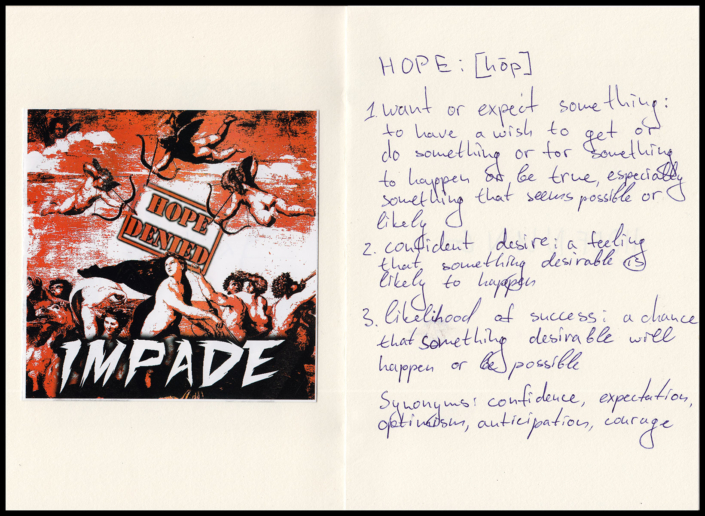 HOPE
DENIED
IMPADE
HOPE: [hōp]
1. want or expect something:
to have a wish to get or
do something or for something
to happen or be true, especially
something that seems possible or
likely
2. confident desire: a feeling
that something desirable is
likely to happen
3. likelihood of success: a chance
that something desirable will
happen or be possible
Synonyms: confidence, expectation,
optimism, anticipation, courage